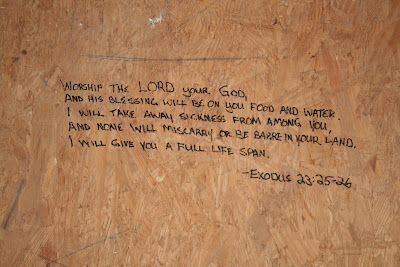 WORSHIP THE LORD YOUR GOD,
AND HIS BLESSING WILL BE ON YOU FOOD AND WATER.
I WILL TAKE AWAY SICKNESS FROM AMONG YOU,
AND NONE WILL MISCARRY OR BE BARRE IN YOUR LAND.
I WILL GIVE YOU A FULL LIFE SPAN.
-EXODUS 23:25-26